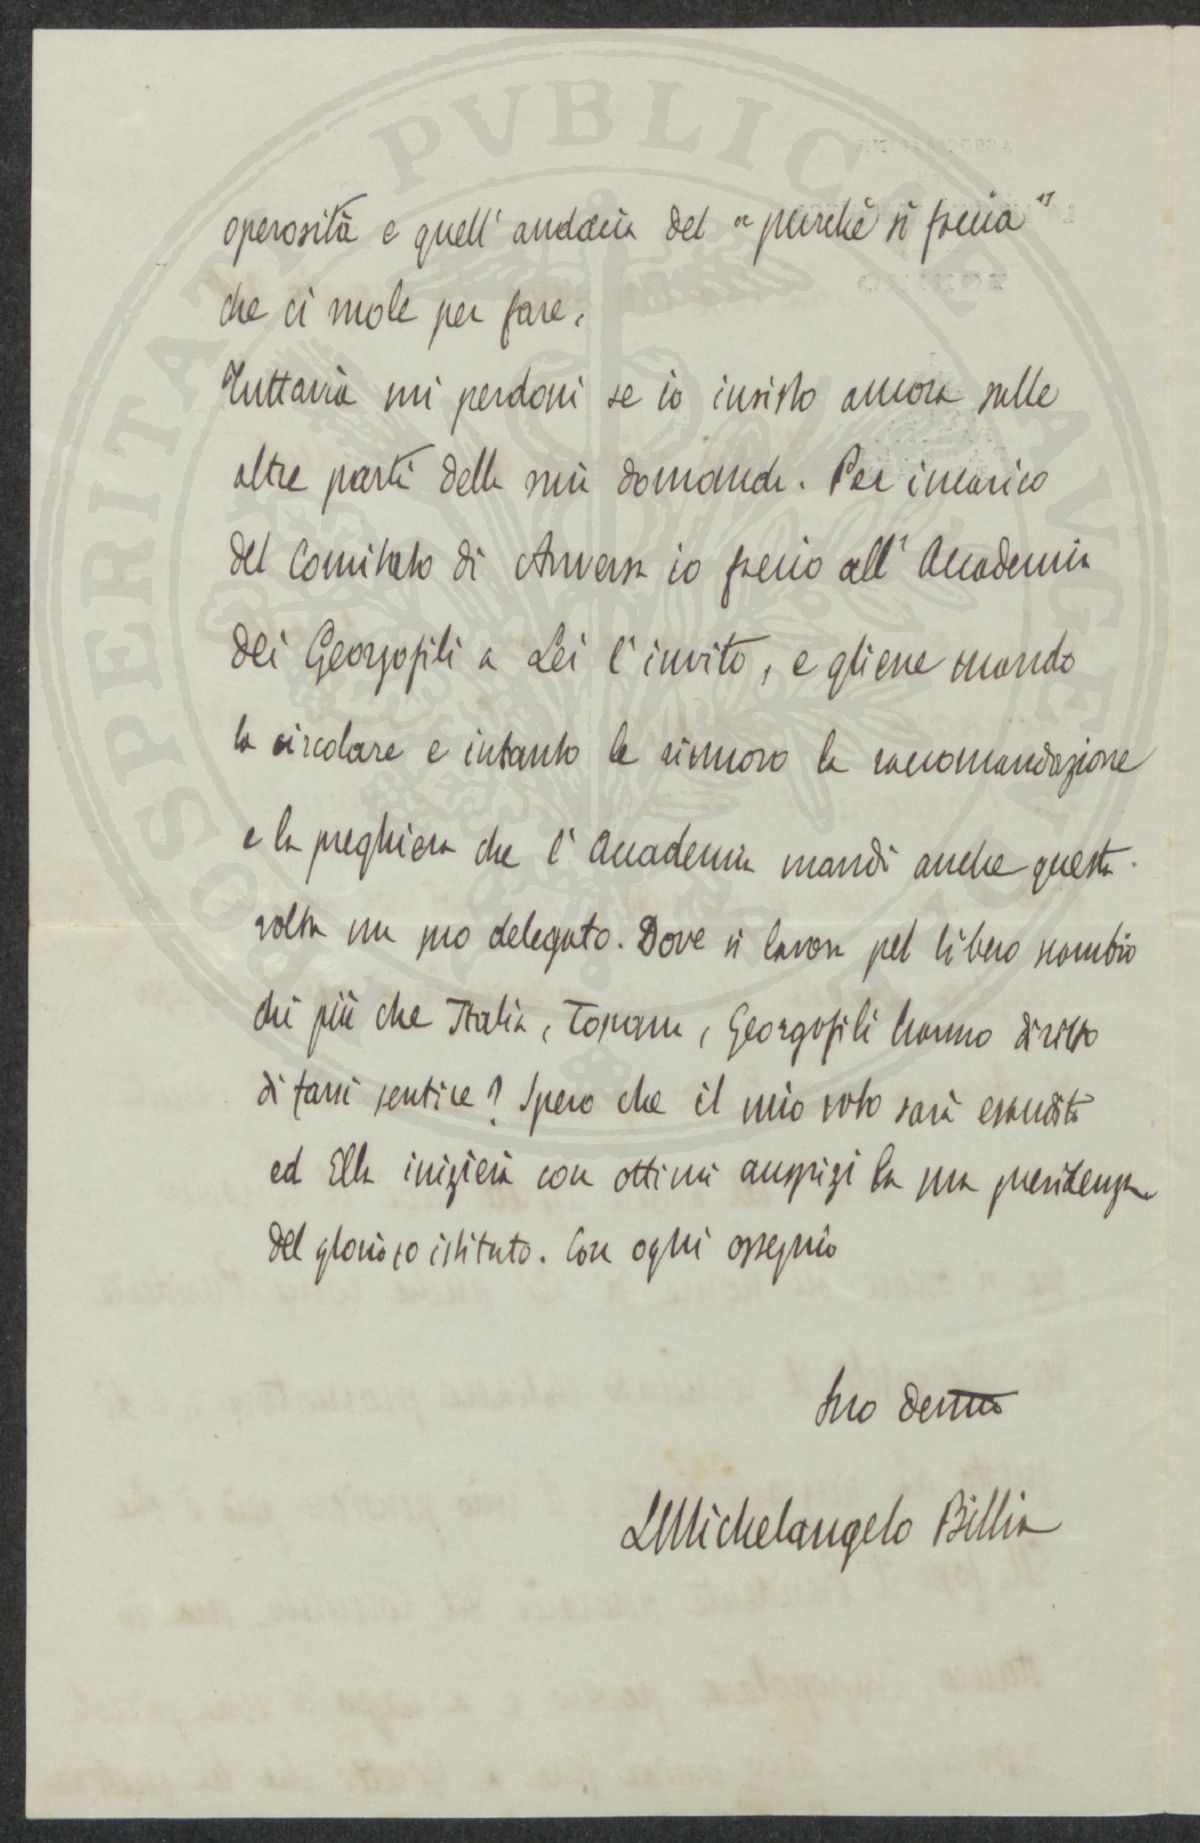 PROSPERITATI PVBLICAE AVGENDAE
operosità e quell' audacia del " purchè si faccia "
che ci vuole per fare.
Tuttavia mi perdoni se io insisto ancora sulle
altre parti della mia domanda. Per incarico
del Comitato di Anversa io faccio all' Accademia
dei Georgofili a Lei l' invito, e gliene mando
la circolare e intanto le rinnovo la raccomandazione
e la preghiera che l' Accademia mandi anche questa
volta un suo delegato. Dove si lavora pel libero scambio
chi più che Italia, Toscana, Georgofili hanno diritto
di farsi sentire? Spero che il mio voto sarà esaudito
ed Ella inizierà con ottimi auspizi la sua presidenza
del glorioso istituto. Con ogni ossequio
Suo devmo
LMichelangelo Billia